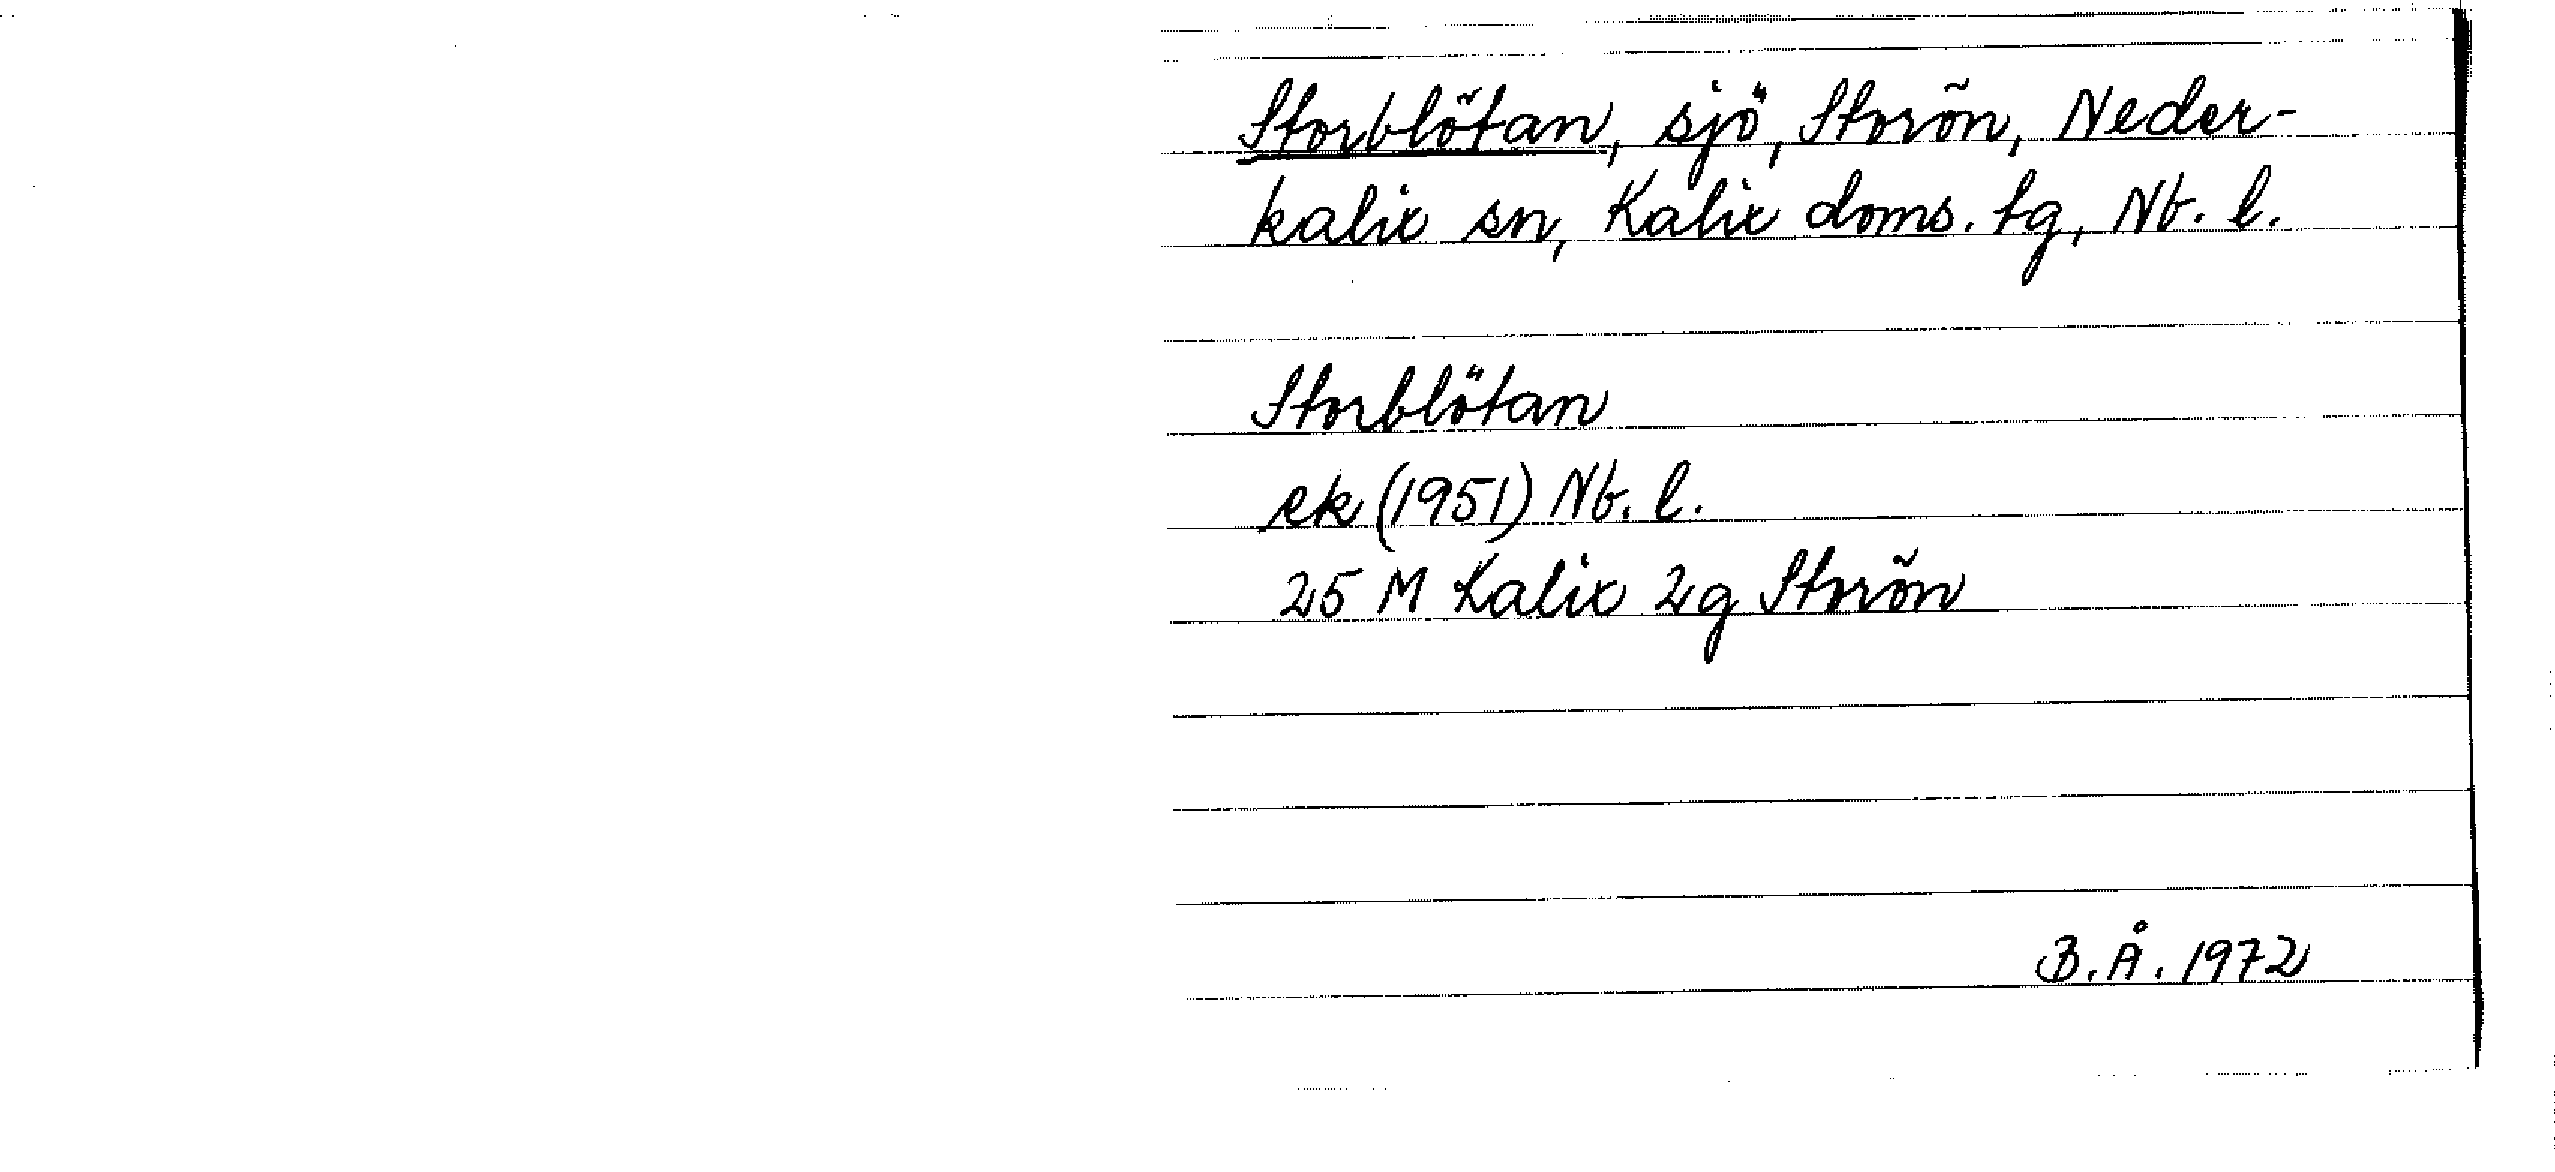 Storblötan, sjö, Storön, Neder-
kalix sn, Kalix doms. tg, Nb. l.
Storblötan
ek (1951) Nb. l.
25 M Kalix 2g Storön
B.Å. 1972